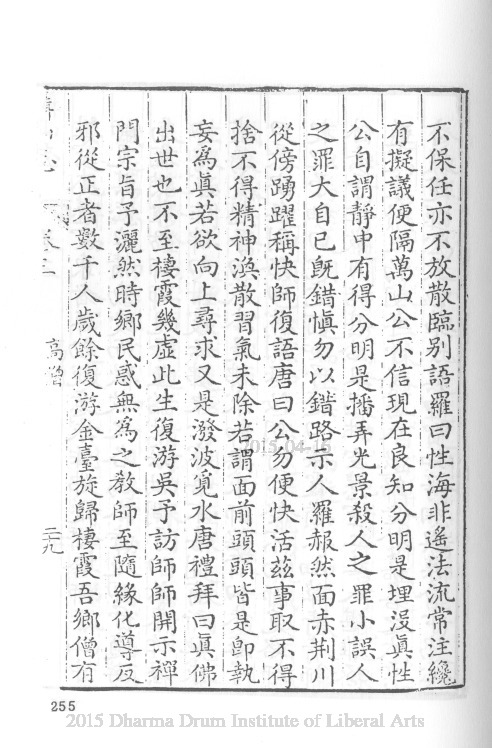 不保任亦不放散臨別語羅曰性海非遙法流常注纔
有擬議便隔萬山公不信現在良知分明是埋沒眞性
公自謂靜中有得分明是播弄光景殺人之罪小誤人
之罪大自已旣錯愼勿以錯路示人羅赧然面赤荆川
從傍踴躍稱快師復語唐曰公勿便快活茲事取不得
捨不得精神渙散習氣未除若謂面前頭頭皆是卽執
妄爲眞若欲向上尋求又是潑波覓水唐禮拜曰眞佛
出世也不至棲霞幾虛此生復游吳予訪師師開示禪
門宗旨予灑然時鄕民惑無爲之敎師至隨緣化導反
邪從正者數千人歲餘復游金臺旋歸棲霞吾鄕僧有
卷三
高僧
二十九
255
2015-04-16
2015 Dharma Drum Institute of Liberal Arts